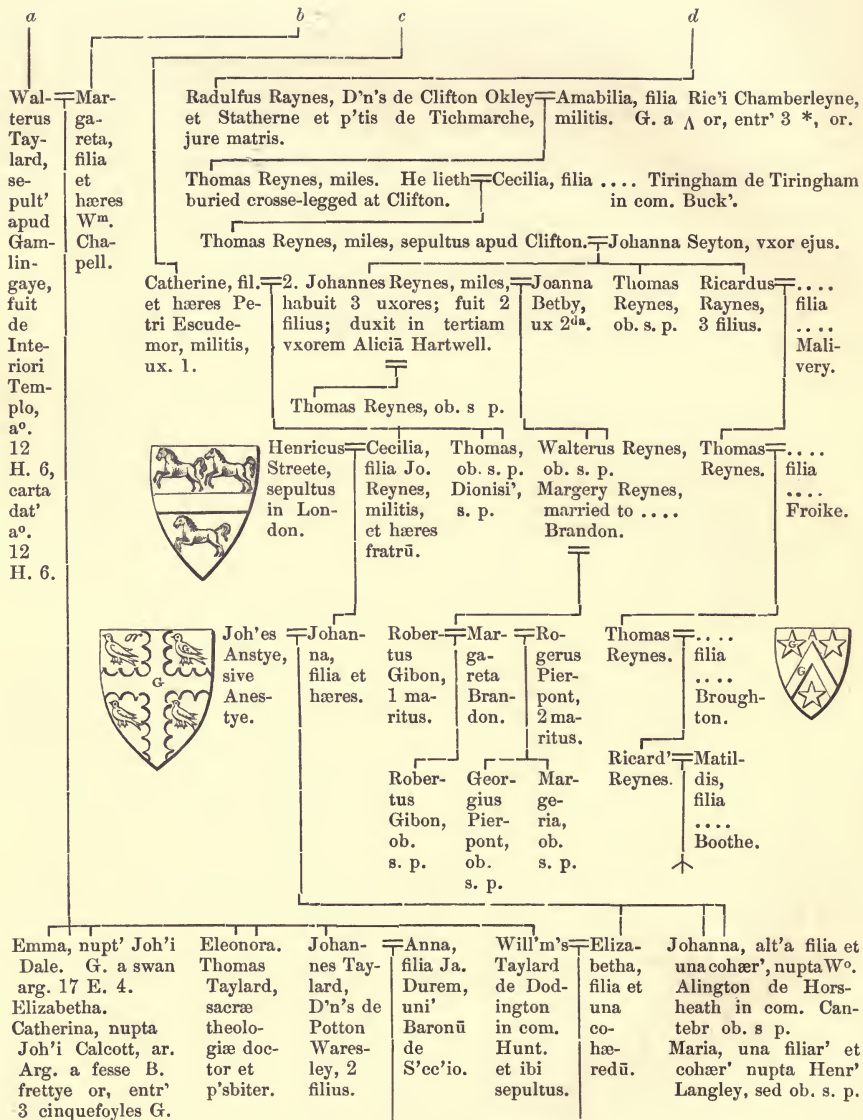 a
b
c
d
Wal-
terus
Tay-
lard,
se-
pult'
apud
Gam-
lin-
gaye,
fuit
de
Inte-
riori
Tem-
plo,
aº.
12
H. 6,
carta
dat'
aº.
12
H. 6.
Mar-
ga-
reta,
filia
et
hæres
Wᵐ.
Cha-
pell.
Radulfus Raynes, D'n's de Clifton Okley
et Statherne et p'tis de Tichmarche,
jure matris.
Amabilia, filia Ric'i Chamberleyne,
militis. G. a ʌ or, entr' 3 *, or.
Thomas Reynes, miles. He lieth
buried crosse-legged at Clifton.
Cecilia, filia .... Tiringham de Tiringham
in com. Buck'.
Thomas Reynes, miles, sepultus apud Clifton.
Johanna Seyton, vxor ejus.
Catherine, fil.
et hæres Pe-
tri Escude-
mor, militis,
ux. 1.
2. Johannes Reynes, miles,
habuit 3 uxores; fuit 2
filius; duxit in tertiam
vxorem Aliciā Hartwell.
Joanna
Betby,
ux 2ᵈᵃ.
Thomas
Reynes,
ob. s. p.
Ricardus
Raynes,
3 filius.
....
filia
....
Mali-
very.
Thomas Reynes, ob. s p.
Henricus
Streete,
sepultus
in Lon-
don.
Cecilia,
filia Jo.
Reynes,
militis,
et hæres
fratrū.
Thomas,
ob. s. p.
Dionisi',
s. p.
Walterus Reynes,
ob. s. p.
Margery Reynes,
married to ....
Brandon.
Thomas
Reynes.
....
filia
....
Froike.
G
Joh'es
Anstye,
sive
Anes-
tye.
Johan-
na,
filia et
hæres.
Rober-
tus
Gibon,
1 ma-
ritus.
Mar-
ga-
reta
Bran-
don.
Ro-
gerus
Pier-
pont,
2 ma-
ritus.
Thomas
Reynes.
....
filia
....
Brough-
ton.
G A
G
Rober-
tus
Gibon,
ob.
s. p.
Geor-
gius
Pier-
pont,
ob.
s. p.
Mar-
ge-
ria,
ob.
s. p.
Ricard'
Reynes.
Matil-
dis,
filia
....
Boothe.
Emma, nupt' Joh'i
Dale. G. a swan
arg. 17 E. 4.
Elizabetha.
Catherina, nupta
Joh'i Calcott, ar.
Arg. a fesse B.
frettye or, entr'
3 cinquefoyles G.
Eleonora.
Thomas
Taylard,
sacræ
theolo-
giæ doc-
tor et
p'sbiter.
Johan-
nes Tay-
lard,
D'n's de
Potton
Wares-
ley, 2
filius.
Anna,
filia Ja.
Durem,
uni'
Baronū
de
S'cc'io.
Will'm's
Taylard
de Dod-
ington
in com.
Hunt.
et ibi
sepultus.
Eliza-
betha,
filia et
una
co-
hæ-
redū.
Johanna, alt'a filia et
una cohær', nupta Wº.
Alington de Hors-
heath in com. Can-
tebr ob. s p.
Maria, una filiar' et
cohær' nupta Henr'
Langley, sed ob. s. p.